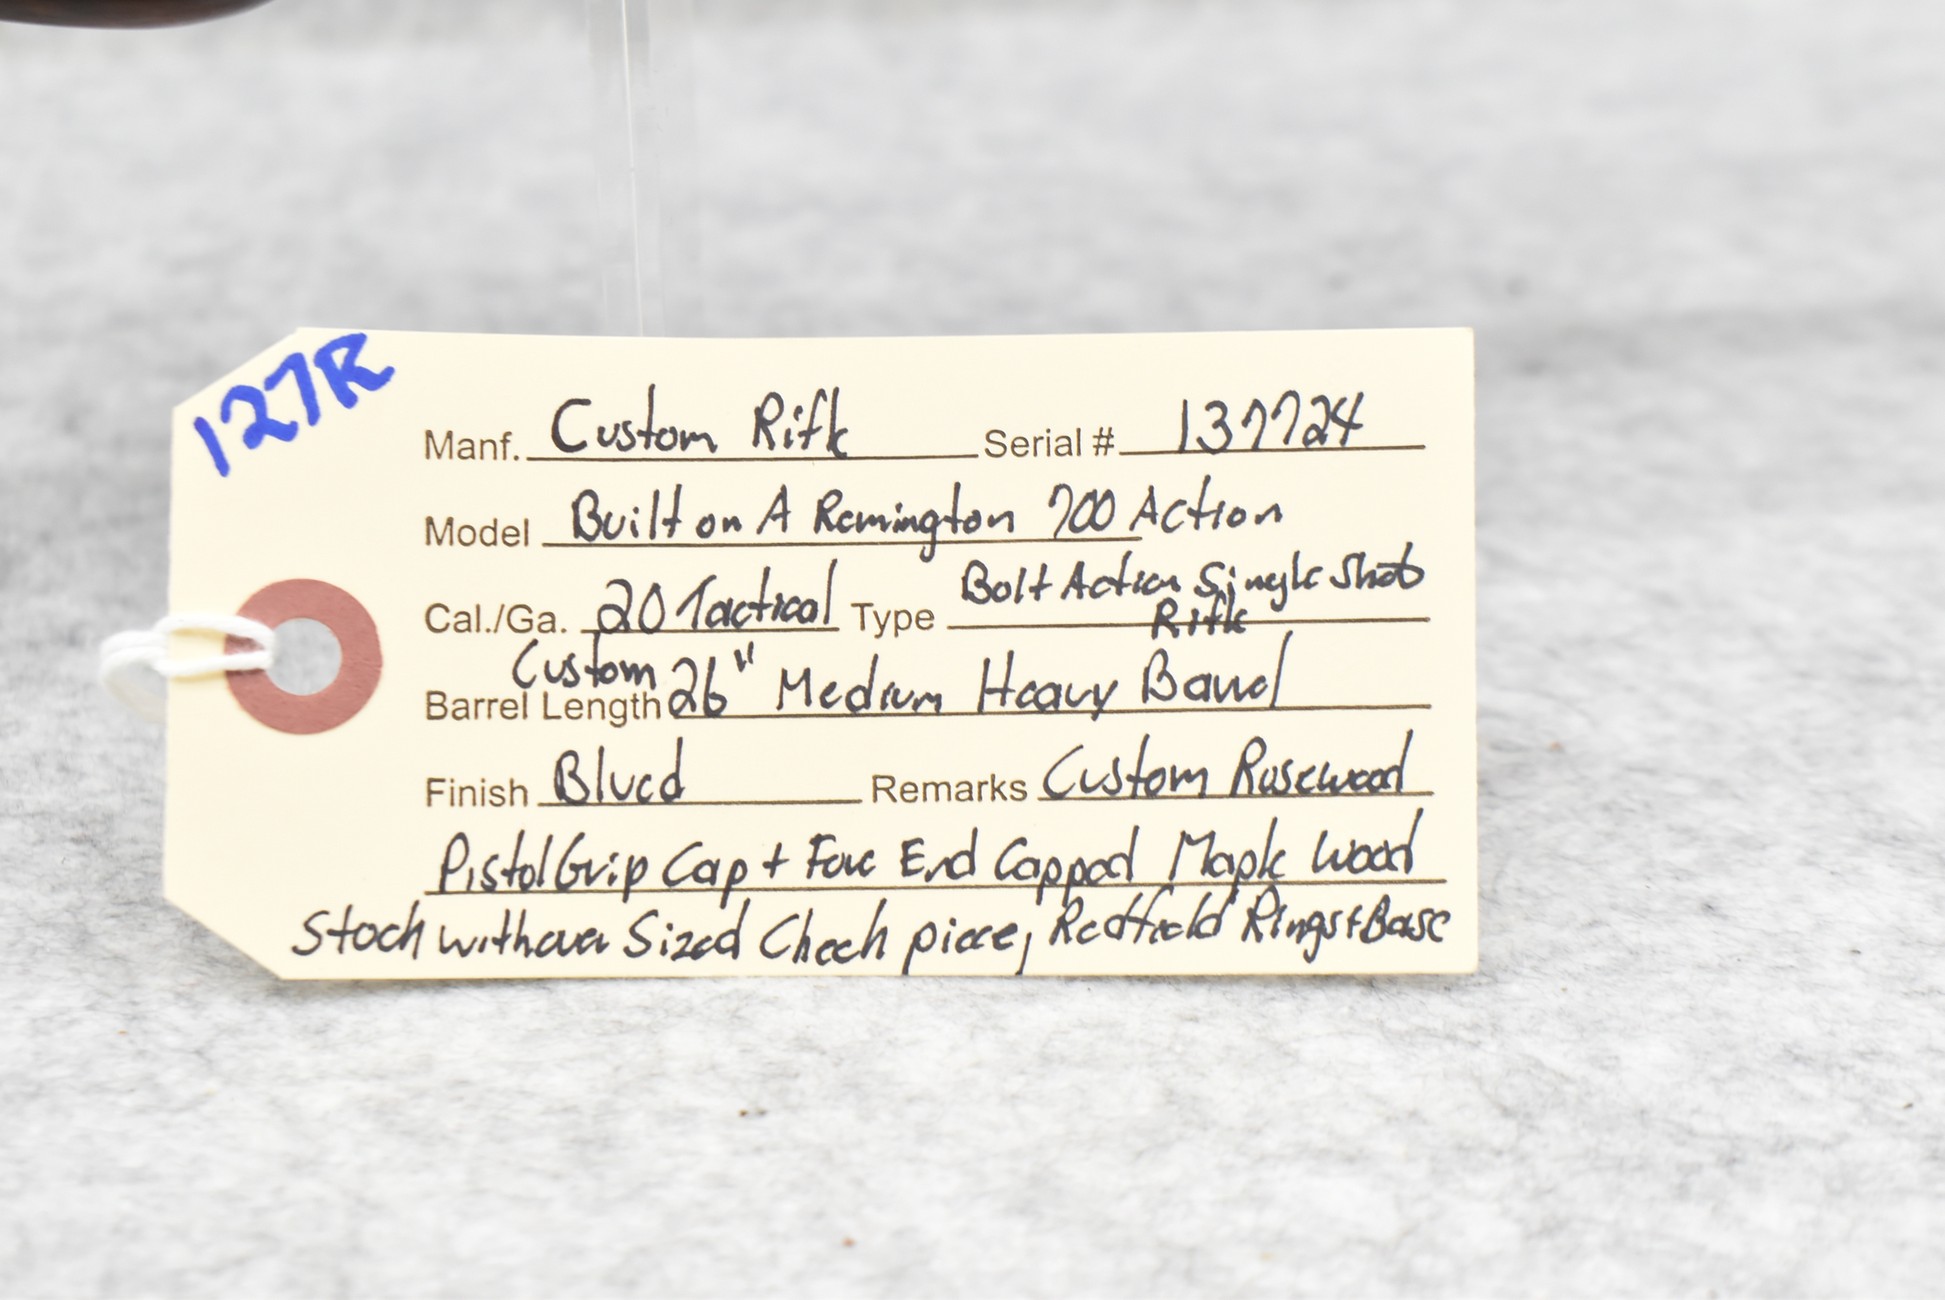 127R
Manf. Custom Rifle Serial # 137724
Model Built on A Remington 700 Action
Cal./Ga. 20 Tactical Type Bolt Action Single Shot
Rifle
Custom
Barrel Length 26" Medium Heavy Barrel
Finish Blued Remarks Custom Rosewood
Pistol Grip Cap + Fore End Capped Maple Wood
Stock with over Sized Cheek piece, Redfield Rings + Base